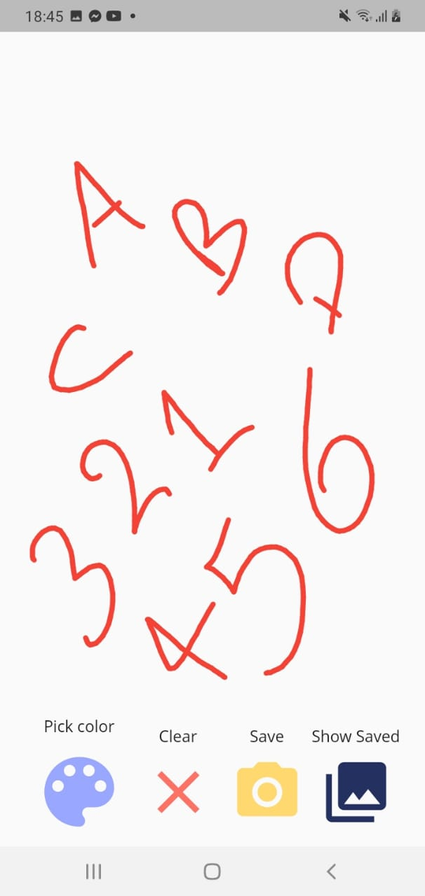 18:45
A B D
C
1 6
2
3 4 5
Pick color
Clear
Save
Show Saved